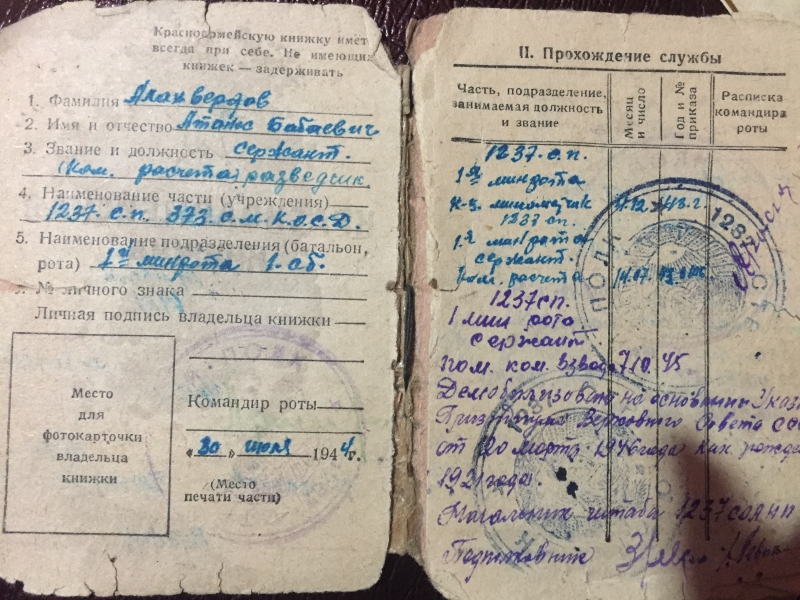 Красноармейскую книжку имет
всегда при себе. Не имеющих
книжек — задерживать
1. Фамилия Алахвердов
2. Имя и отчество Бабаевич
3. Звание и должность сержант.
ком. расчета разведчик
4. Наименование части (учреждения)
1237. с.п. 373. с.м.К.О.С.Д.
5. Наименование подразделения (батальон,
рота) 1я минрота 1. сб.
№ личного знака
Личная подпись владельца книжки
Место
для
фотокарточки
владельца
книжки
Командир роты
«30» июля 1944г.
(Место
печати части)
II. Прохождение службы
Часть, подразделение,
занимаемая должность
и звание
Месяц
и число
Год и №
приказа
Расписка
командира
роты
1237. с.п.
1я минрота
минометчик
1237 сп.
1я минрота
сержант.
Ком. расчета 14.07.
1237 сп.
1 мин рота
сержант
пом. ком. взвод. 7 10. 45
Демобилизован на основании Указа
Президиума Верховного Совета
от 20 марта 1946 года как рожде
1921 года.
Начальник штаба 1237
Подполковник
ПОЛК
1237